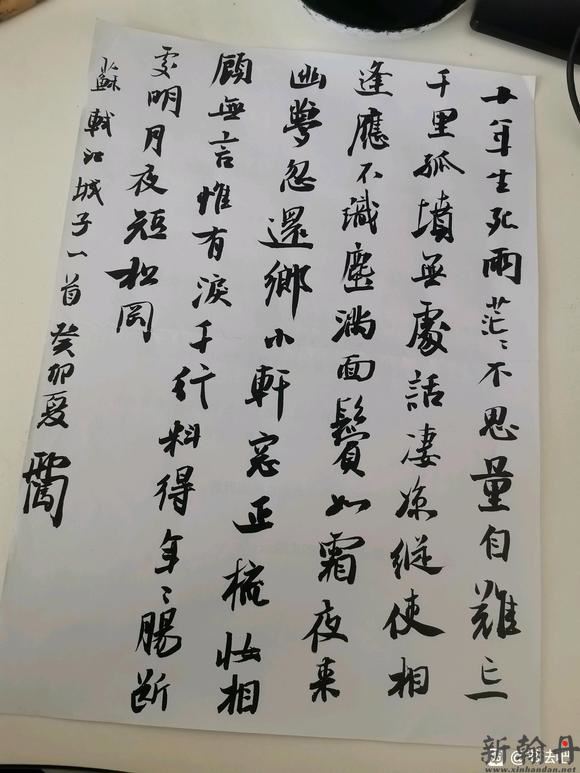 十年生死兩茫〻不思量自難忘
千里孤墳無處話凄凉縱使相
逢應不識塵滿面鬢如霜夜来
幽夢忽還鄉小軒窓正梳妝相
顧無言惟有淚千行料得年〻腸断
處明月夜短松岡
蘇軾江城子一首癸卯夏
新翰丹
www.xinhandan.net